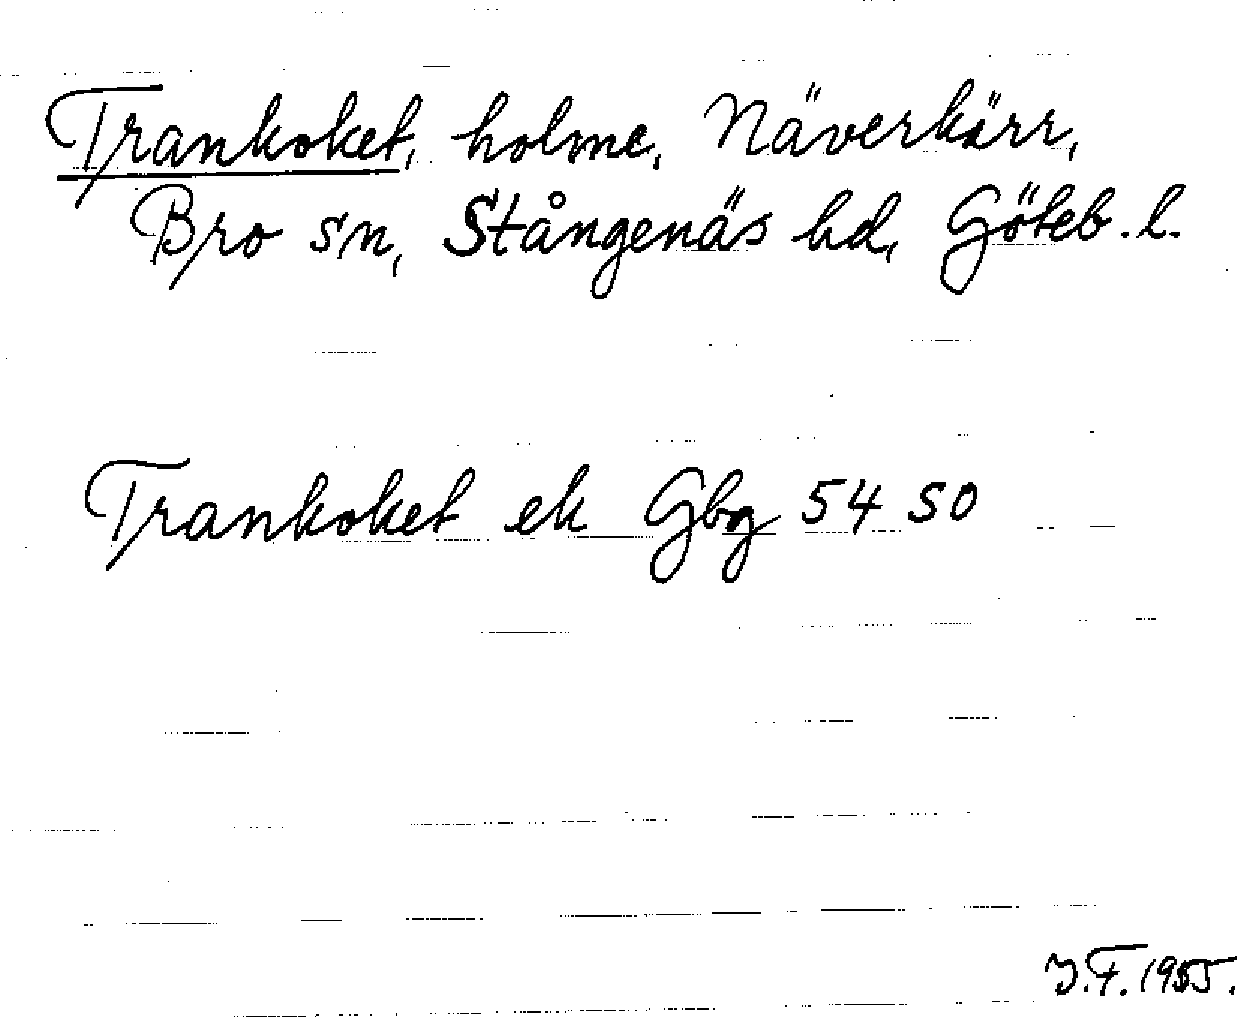 Trankoket, holme, Näverkärr,
Bro sn, Stångenäs hd, Göteb. l.
Trankoket ek Gbg 54 SO
J.F. 1955.